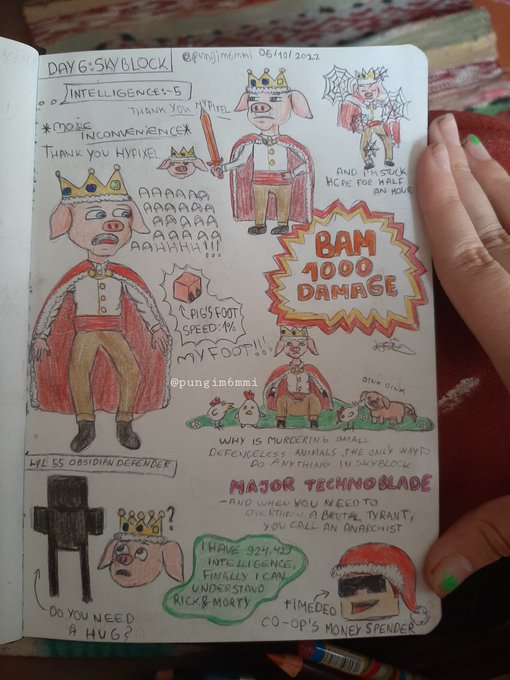 DAY 6: SKYBLOCK
@pungim6mmi 06/10/2022
INTELLIGENCE:-5
THANK YOU HYPIXEL
*MAGIC
INCONVENIENCE*
THANK YOU HYPIXEL
AND I'M STUCK
HERE FOR HALF
AN HOUR
AAAAAA
AAAAAA
AAAAA
AAAAAA
AAHHHH!!!
BAM
1000
DAMAGE
PIG'S FOOT
SPEED:1%
MY FOOT!!
@pungim6mmi
OINK OINK
WHY IS MURDERING SMALL
DEFENCELESS ANIMALS, THE ONLY WAY TO
DO ANYTHING IN SKYBLOCK
LVL 55 OBSIDIAN DEFENDER
MAJOR TECHNOBLADE
-AND WHEN YOU NEED TO
OVERTHROW A BRUTAL TYRANT,
YOU CALL AN ANARCHIST
?
I HAVE 924,429
INTELLIGENCE,
FINALLY I CAN
UNDERSTAND
RICK & MORTY
DO YOU NEED
A HUG?
TIMEDEO
CO-OP'S MONEY SPENDER